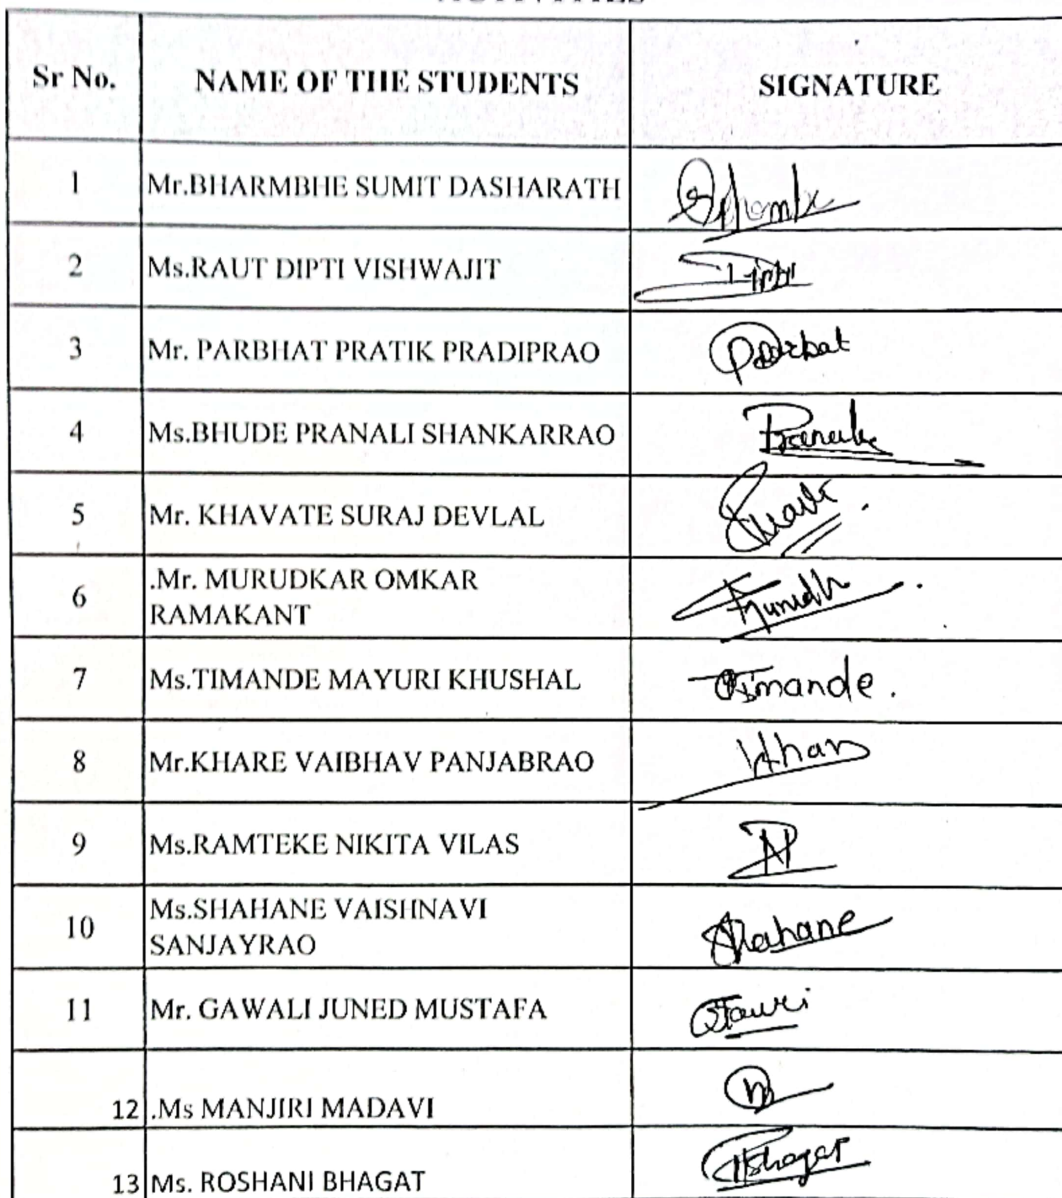 Sr No. NAME OF THE STUDENTS SIGNATURE
1 Mr.BHARMBHE SUMIT DASHARATH
2 Ms.RAUT DIPTI VISHWAJIT
3 Mr. PARBHAT PRATIK PRADIPRAO Parbat
4 Ms.BHUDE PRANALI SHANKARRAO
5 Mr. KHAVATE SURAJ DEVLAL
6 .Mr. MURUDKAR OMKAR
RAMAKANT
7 Ms.TIMANDE MAYURI KHUSHAL Timande.
8 Mr.KHARE VAIBHAV PANJABRAO
9 Ms.RAMTEKE NIKITA VILAS
10 Ms.SHAHANE VAISHNAVI
SANJAYRAO Shahane
11 Mr. GAWALI JUNED MUSTAFA
12 .Ms MANJIRI MADAVI
13 Ms. ROSHANI BHAGAT